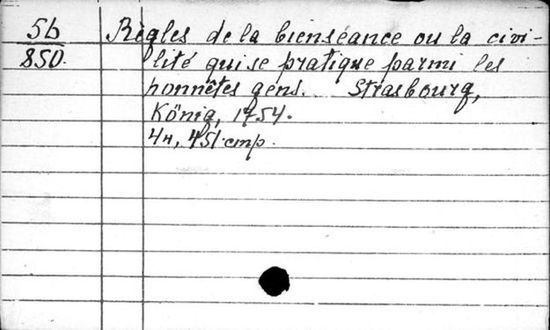 5б Règles de la bienséance ou la civi-
850. lité qui se pratique parmi les
honnêtes gens. Strasbourg,
König, 1754.
4н, 451 стр.